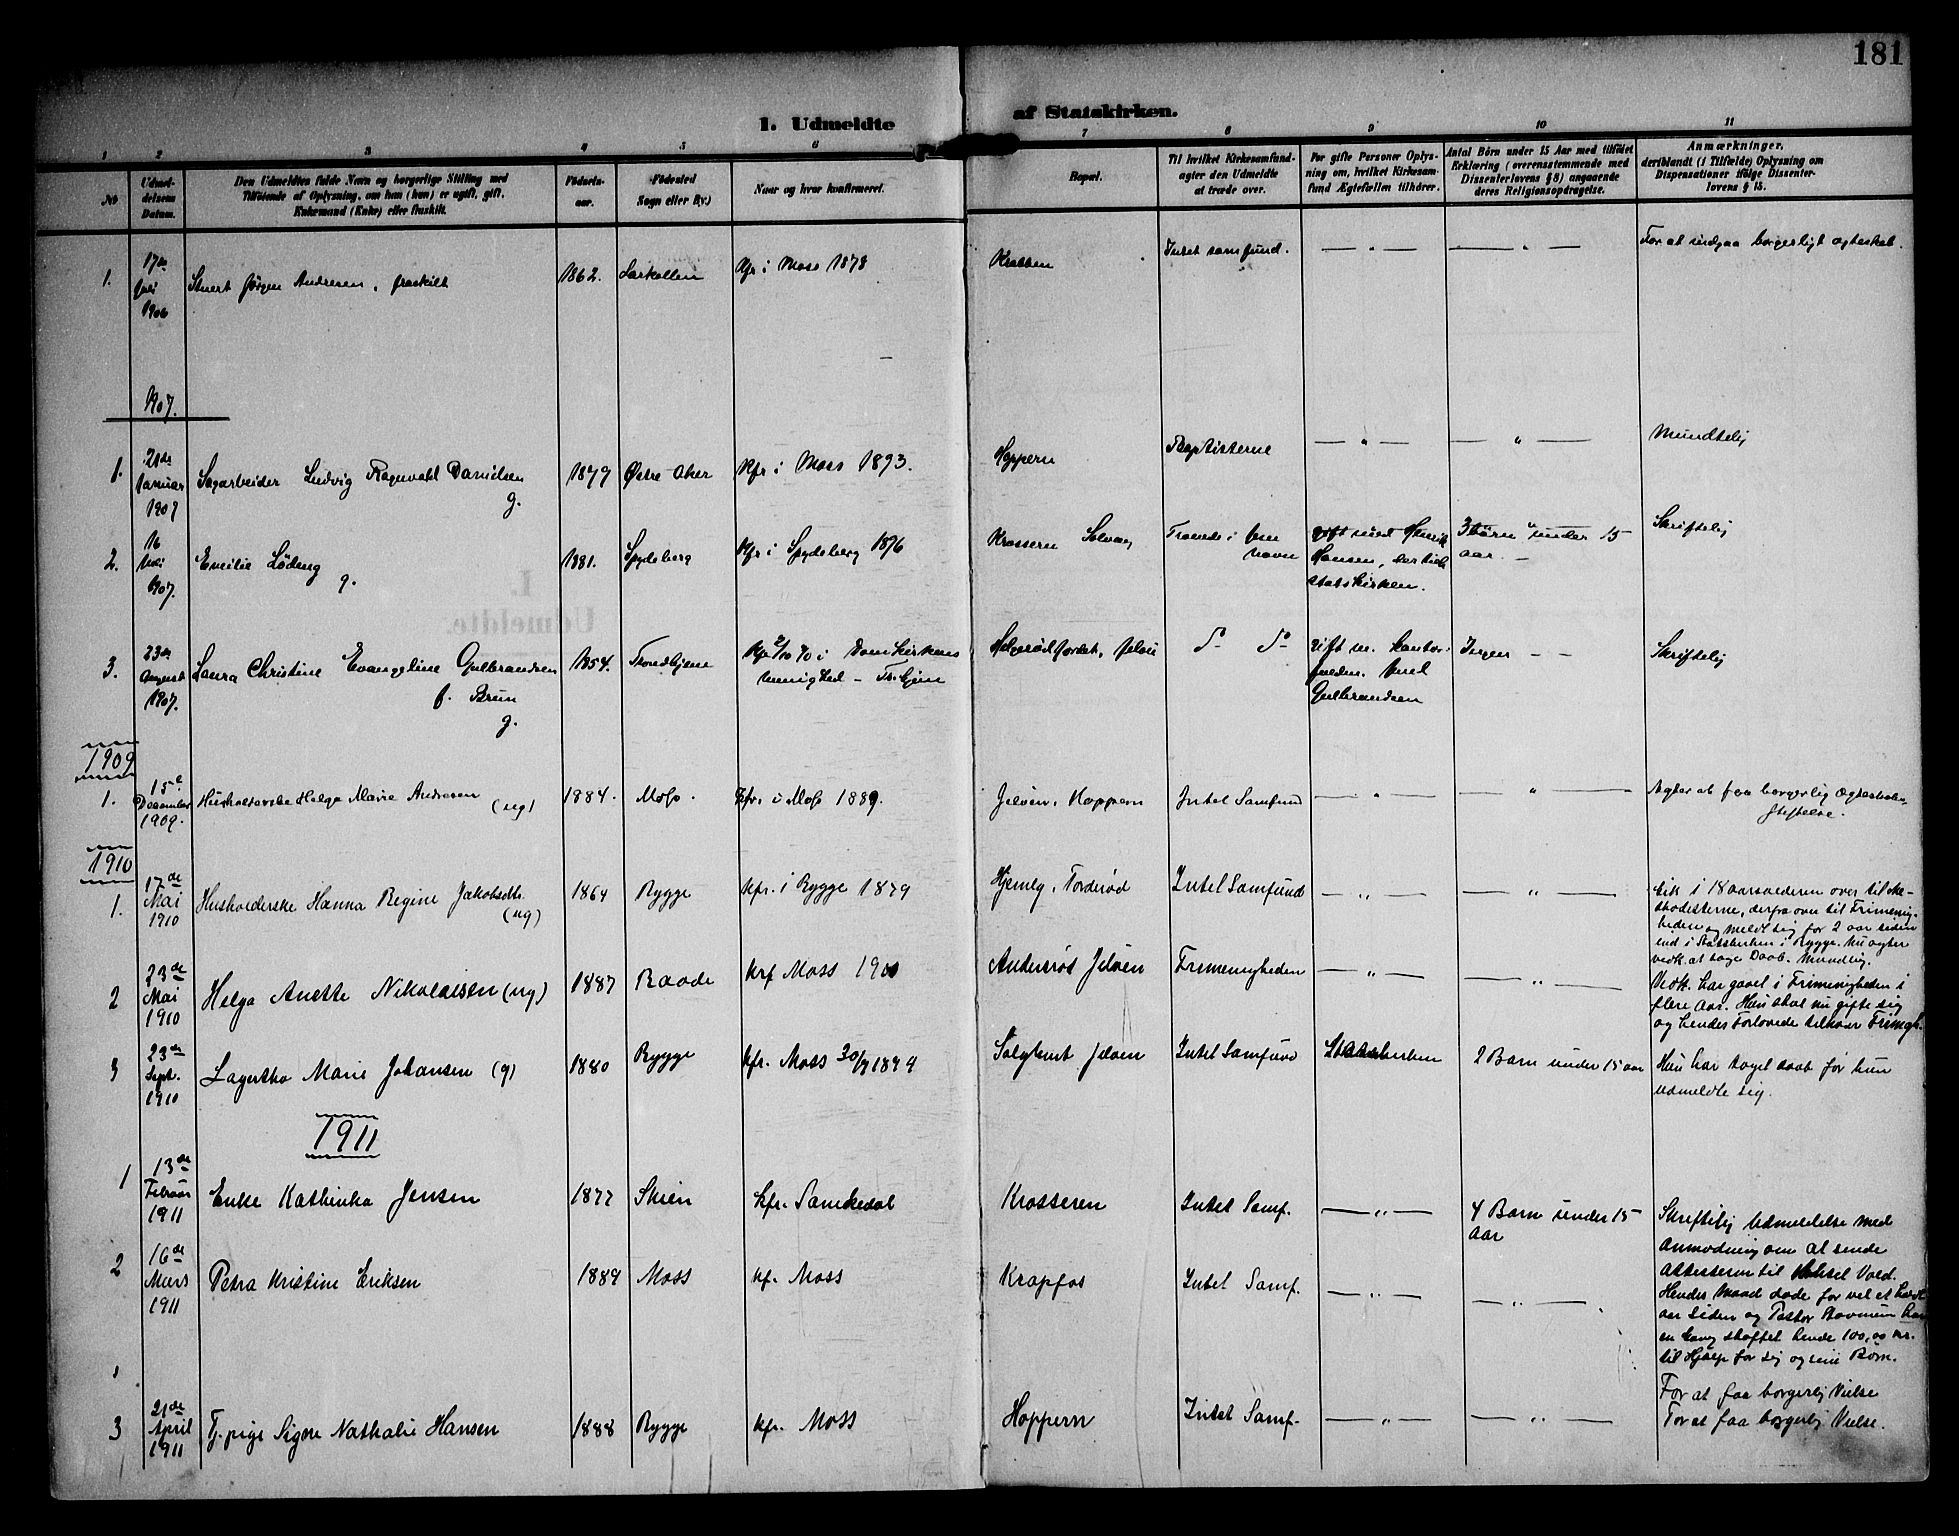 181
1. Udmeldte af Statskirken.
1 2 3 4 5 6 7 8 9 10 11
No
Udmel-
delsens
Datum.
Den Udmeldtes fulde Navn og borgerlige Stilling med
Tilføiende af Oplysning, om han (hun) er ugift, gift,
Enkemand (Enke) eller fraskilt.
Fødsels-
aar.
Fødested
Sogn eller By.)
Naar og hvor konfirmeret.
Bopæl.
Til hvilket Kirkesamfund
agter den Udmeldte
at træde over.
For gifte Personer Oplys-
ning om, hvilket Kirkesam-
fund Ægtefællen tilhører.
Antal Børn under 15 Aar med tilføiet
Erklæring (overensstemmende med
Dissenterlovens § 8) angaaende
deres Religionsopdragelse.
Anmærkninger,
deriblandt (i Tilfælde) Oplysning om
Dispensationer ifølge Dissenter-
lovens § 15.
1.
17de
Juli
1906
Jørgen Andresen, fraskilt
1862.
Larkollen
Kfr i Moss 1878
Krabben
Intet samfund.
— " —
— " —
For at indgaa borgerligt ægteskab.
1907.
1.
21de
Januar
1907
Sagarbeider Ludvig Ragnvald Danielsen
g.
1879
Østre Aker
Kfr i Moss 1893.
Hoppern
Baptisterne
— " —
— " —
Mundtlig
2.
16
Mai
1907.
Emilie Løding
g.
1881.
Spydeberg
Kfr i Spydeberg 1896
Krosseren Solvang
Troende i Jesu
navn
gift med Henrik
Hansen, der tilh
statskirken.
3 børn under 15
aar. —
Skriftlig
3.
23de
August
1907.
Laura Christine Evangeline Gulbrandsen
f. Brun
g.
1854.
Trondhjem
Kfr 2/10 70 i Domkirkens
menighed - Tr.hjem
Jeløi
do do
gift m. kontor-
fuldm. Emil
Gulbrandsen
Ingen — —
Skriftlig
1909
1.
15de
December
1909.
Helga Marie Andresen
(ug)
1884.
Moss.
Kfr. i Moss 1889.
Jeløen, Hoppern
Intet Samfund
— " —
— " —
Agter at faa borgerlig Ægteskabs
stiftelse.
1910
1.
17de
Mai
1910
Husholderske Hanna Regine Jakobsdtr.
(ug)
1864
Rygge
Kfr. i Rygge 1879
Hjemlg, Torderød
Intet Samfund
— " —
— " —
Gik i 18 aarsalderen over til Me-
thodisterne, derfra over til Frimenig-
heden og meldt sig for 2 aar siden
ind i Statskirken i Rygge. Nu agter
vedk. at tage Daab. Mundlig.
2
23de
Mai
1910
Helga Anette Nikolaisen (ug)
1887
Raade
Krf Moss 1901
Anderød Jeløen
Frimenigheden
— " —
— " —
Vedk. har gaaet i Frimenigheden i
flere Aar. Hun skal nu gifte sig
og hendes Forlovede tilhører Frimegh.
3
23de
Sept.
1910
Lagertha Marie Johansen (g)
1880
Rygge
Kfr. Moss 30/9 1894
Solgbmt Jeløen
Intet Samfund
Statskirken
2 Barn under 15 aar
Hun har taget daab før hun
udmeldte sig.
1911
1
13de
Februar
1911
Enke Kathinka Jensen
1877
Skien
Kfr. Sannkedal
Krosseren
Intet Samf.
— " —
4 Barn under 15
aar
Skriftlig Udmeldelse med
anmodning om at sende
attesten til Vold.
Hendes Mand døde for vel et halvt
aar siden og Pastor har
en Gang skaffet hende 100,00 kr.
til Hjælp for sig og sine Børn.
2
16de
Mars
1911
Petra Kristine Eriksen
1889
Moss
Kf. Moss
Krapfos
Intet Samf.
— " —
— " —
For at faa borgerlig Vielse
3
21de
April
1911
Tj.pige Signe Nathalie Hansen
1888
Rygge
Kfr. Moss
Hoppern
Intet Samf.
— " —
— " —
For at faa borgerlig Vielse.